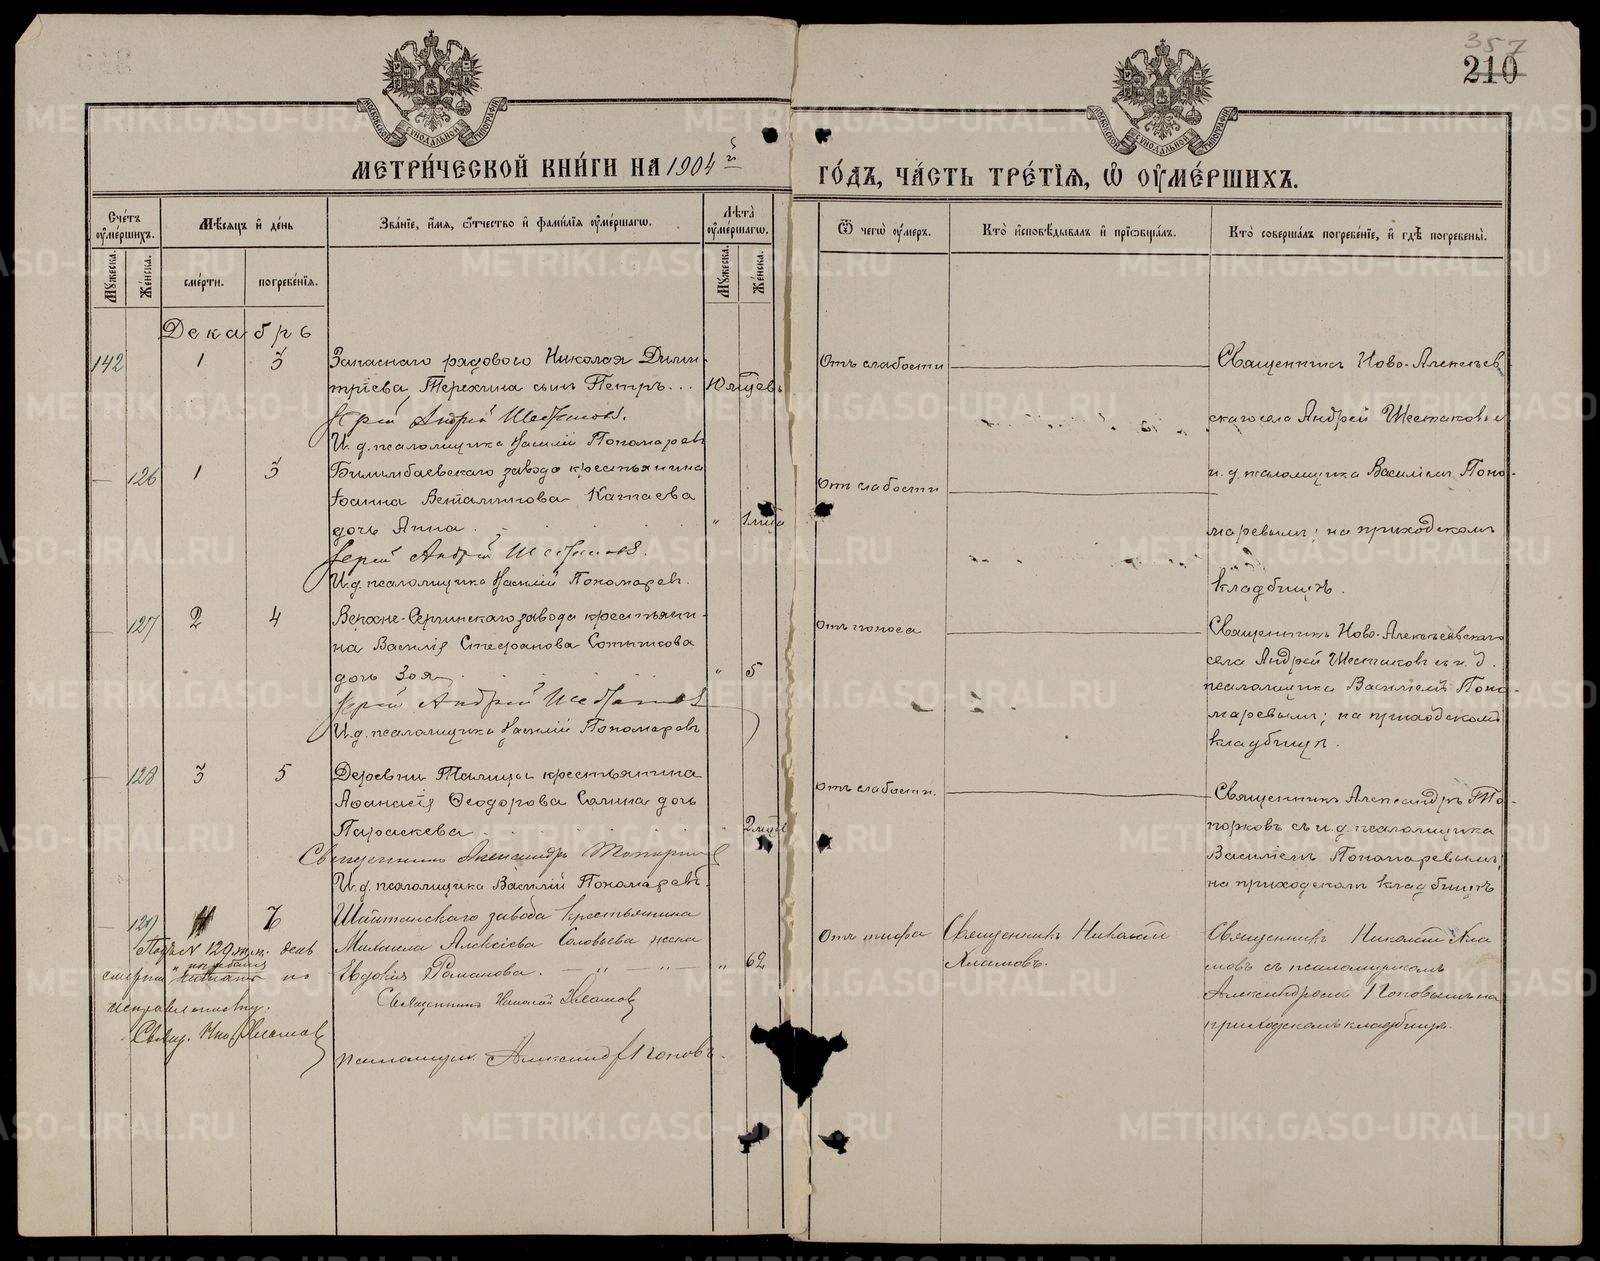 357
210
МЕТРИ́ЧЕСКОЙ КНИ́ГИ НА 1904 й
ГО́ДЪ, ЧА́СТЬ ТРЕ́ТІЯ, Ѿ ОУМЕ́РШИХЪ.
Счетъ оумершихъ.
Мужеска.
Женска.
Мѣсяцъ и день
смерти.
погребенія.
Званіе, имя, отчество и фамилія оумершагѡ.
Лѣта оумершагѡ.
Мужеска.
Женска.
Ѿ чегѡ оумеръ.
Кто исповѣдывалъ и пріобщалъ.
Кто совершалъ погребеніе, и гдѣ погребены.
Декабрь
142 1 3
Запаснаго рядового Николая Дими-
тріева Терехина сынъ Петръ... 10 мцевъ
Іерей Андрей Шестаковъ.
И. д. псаломщика Василій Пономаревъ
Отъ слабости
Священникъ Ново-Алексѣев-
скаго села Андрей Шестаковъ с
и. д. псаломщика Василіем Поно-
маревымъ; на приходскомъ
кладбищѣ.
126 1 3
Билимбаевскаго завода крестьянина
Іоанна Веніаминова Катаева
дочь Анна. " 1 мца
Іерей Андрей Шестаковъ.
И. д. псаломщика Василій Пономаревъ.
Отъ слабости
127 2 4
Верхне-Сергинскаго завода крестьяни-
на Василія Стефанова Сотникова
дочь Зоя. " 5
Іерей Андрей Шестаковъ
И. д. псаломщика Василій Пономаревъ
Отъ поноса
Священникъ Ново-Алексѣевскаго
села Андрей Шестаковъ с и. д.
псаломщика Василіемъ Поно-
маревымъ; на приходскомъ
кладбищѣ.
128 3 5
Деревни Талицы крестьянина
Аѳанасія Ѳеодорова Салина дочь
Параскева 2 мцев
Священникъ Александръ Топорковъ
И. д. псаломщика Василій Пономаревъ.
Отъ слабости.
Священникъ Александръ То-
порковъ съ и. д. псаломщика
Василіемъ Пономаревымъ;
на приходскомъ кладбищѣ
129 4 6
Шайтанскаго завода крестьянина
Михаила Алексѣева Соловьева жена
Евдокія Романова. — " — " 62
Священникъ Николай Хламовъ
Псаломщик Александръ Поповъ.
Подъ № 129 ж. п. день
смерти " по
исправленному.
Свящ. Ник. Хламовъ
Отъ тифа
Священникъ Николай
Хламовъ.
Священникъ Николай Хла
мовъ съ псаломщикомъ
Александромъ Поповымъ на
приходскомъ кладбищѣ.
METRIKI.GASO-URAL.RU